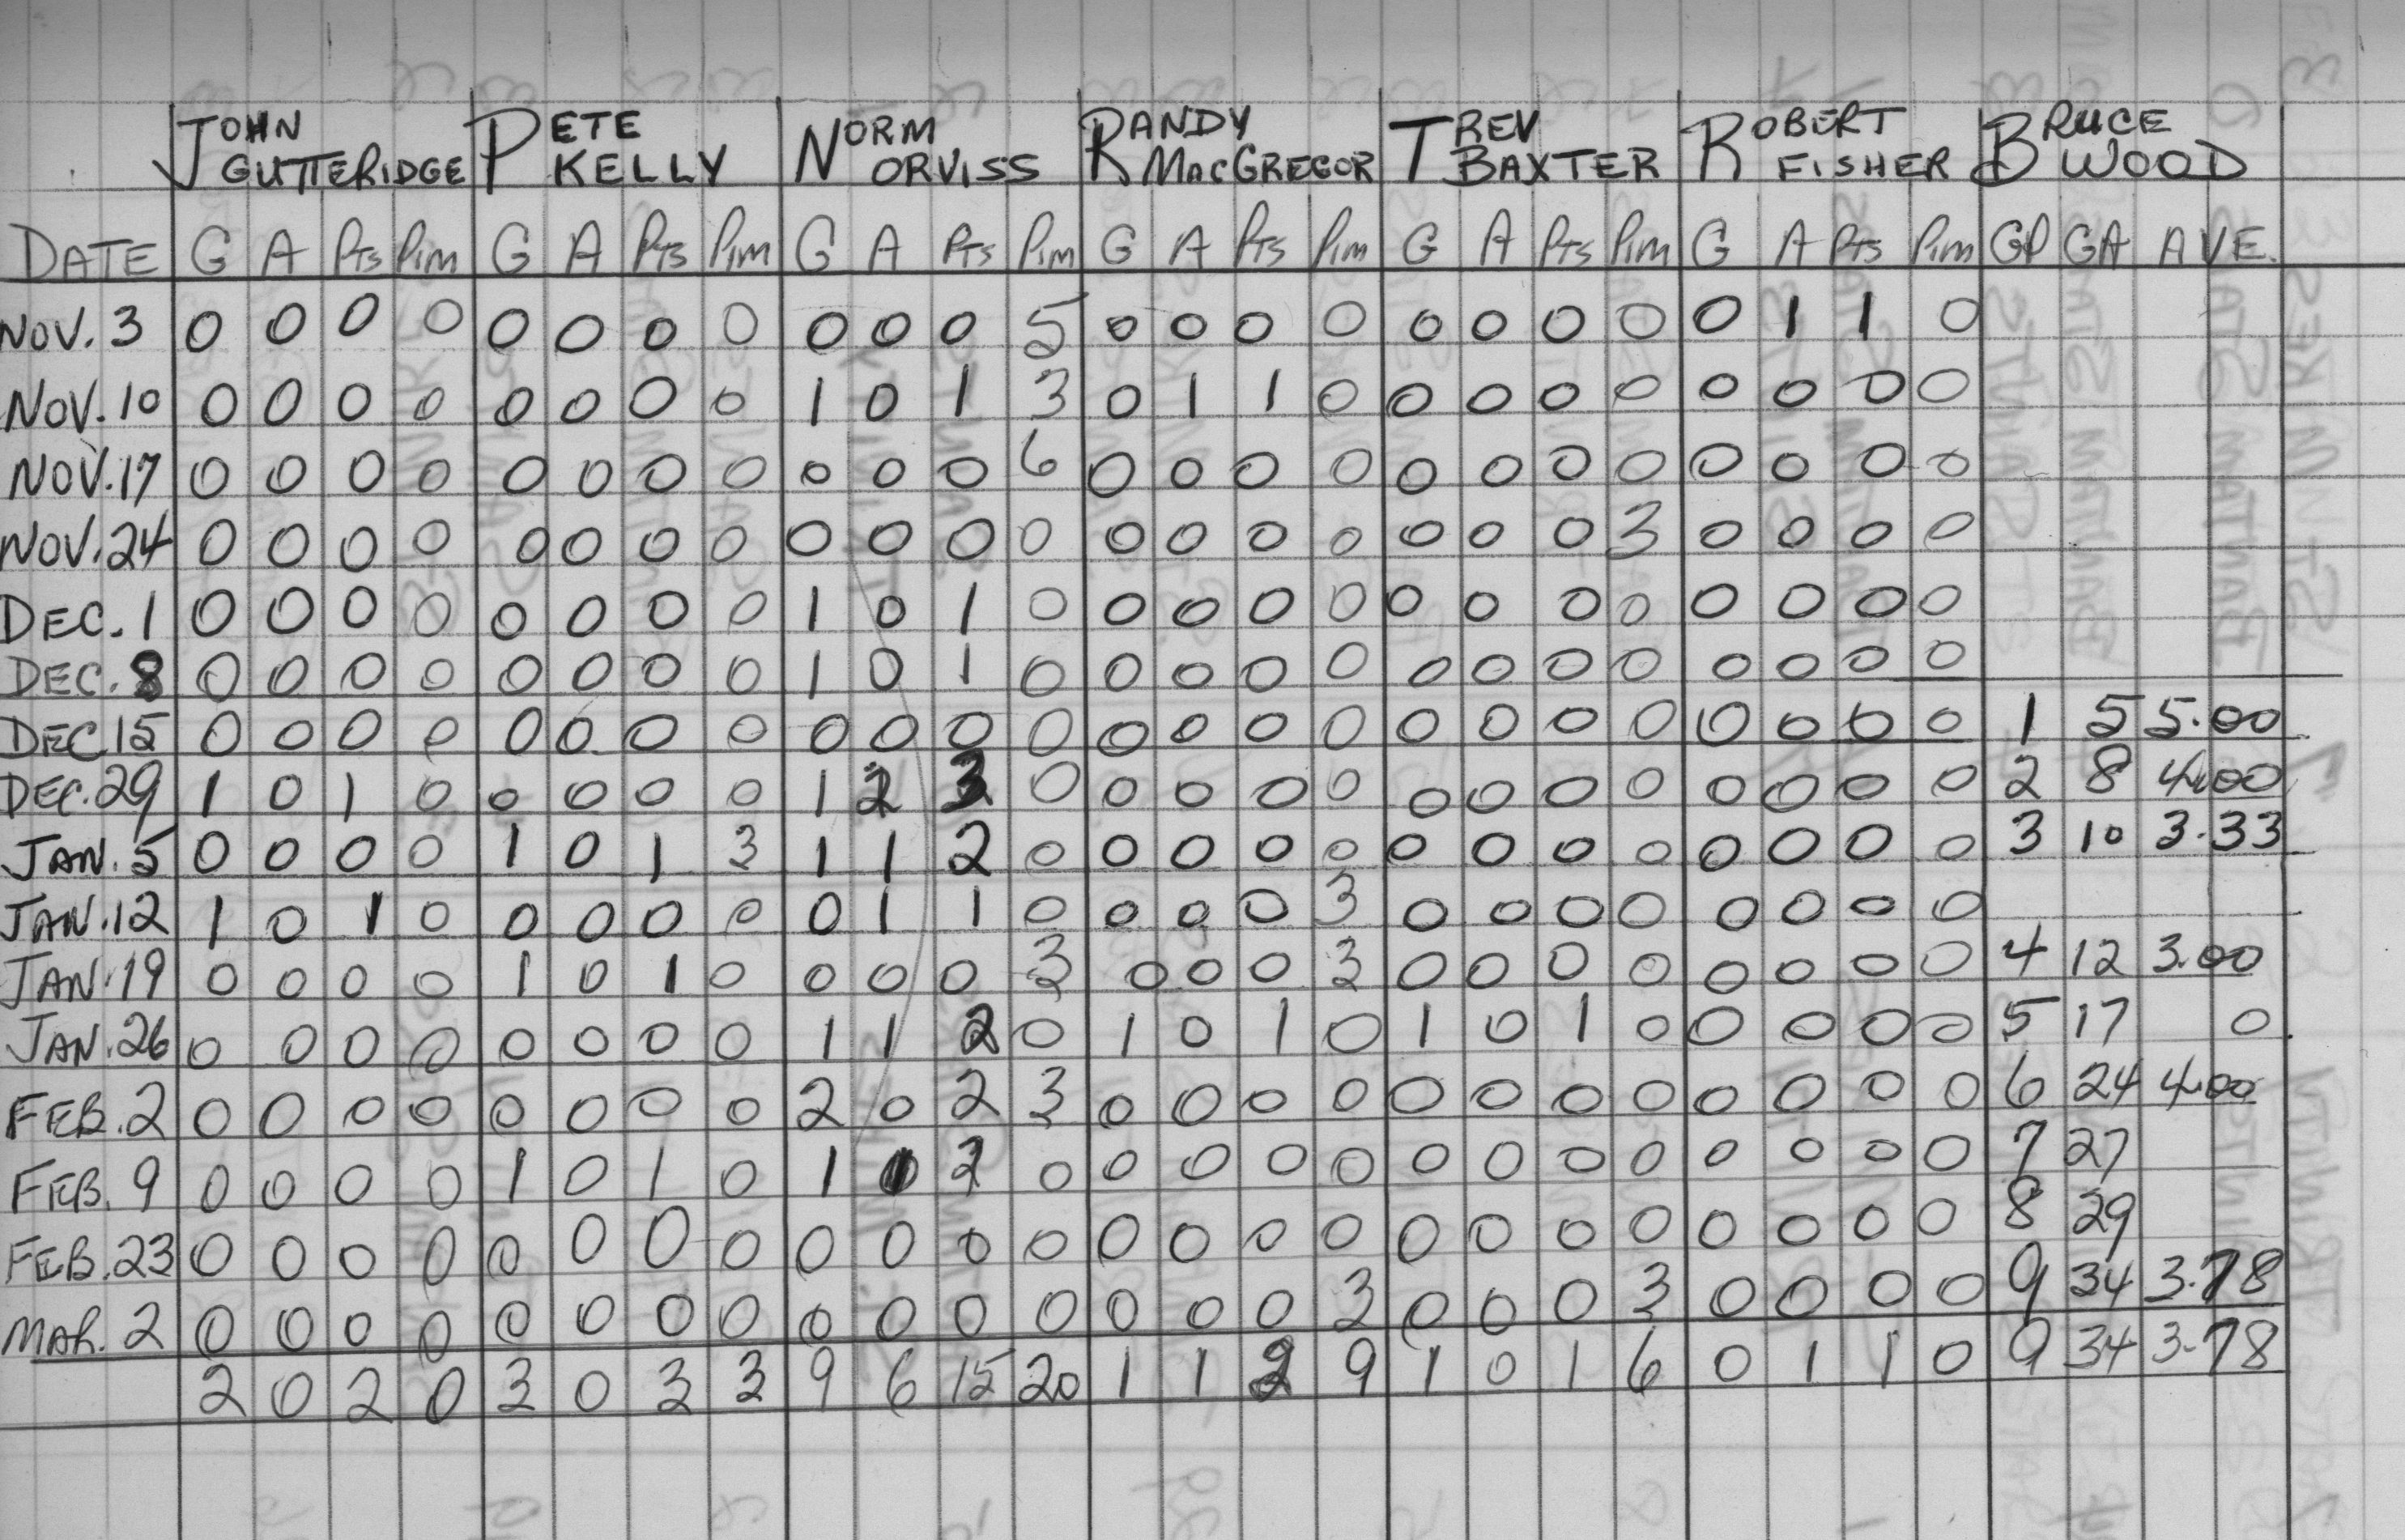 JOHN GUTTERIDGE PETE KELLY NORM ORVISS RANDY MACGREGOR TREV BAXTER ROBERT FISHER BRUCE WOOD
DATE G A Pts Pim G A Pts Pim G A Pts Pim G A Pts Pim G A Pts Pim G A Pts Pim GP GA AVE.
NOV. 3 0 0 0 0 0 0 0 0 0 0 0 5 0 0 0 0 0 0 0 0 0 1 1 0
NOV. 10 0 0 0 0 0 0 0 0 1 0 1 3 0 1 1 0 0 0 0 0 0 0 0 0
NOV. 17 0 0 0 0 0 0 0 0 0 0 0 6 0 0 0 0 0 0 0 0 0 0 0 0
NOV. 24 0 0 0 0 0 0 0 0 0 0 0 0 0 0 0 0 0 0 0 3 0 0 0 0
DEC. 1 0 0 0 0 0 0 0 0 1 0 1 0 0 0 0 0 0 0 0 0 0 0 0 0
DEC. 8 0 0 0 0 0 0 0 0 1 0 1 0 0 0 0 0 0 0 0 0 0 0 0 0
DEC. 15 0 0 0 0 0 0 0 0 0 0 0 0 0 0 0 0 0 0 0 0 0 0 0 0 1 5 5.00
DEC. 29 1 0 1 0 0 0 0 0 1 2 3 0 0 0 0 0 0 0 0 0 0 0 0 0 2 8 4.00
JAN. 5 0 0 0 0 1 0 1 3 1 1 2 0 0 0 0 0 0 0 0 0 0 0 0 0 3 10 3.33
JAN. 12 1 0 1 0 0 0 0 0 0 1 1 0 0 0 0 3 0 0 0 0 0 0 0 0
JAN. 19 0 0 0 0 1 0 1 0 0 0 0 3 0 0 0 3 0 0 0 0 0 0 0 0 4 12 3.00
JAN. 26 0 0 0 0 0 0 0 0 1 1 2 0 1 0 1 0 1 0 1 0 0 0 0 0 5 17 0
FEB. 2 0 0 0 0 0 0 0 0 2 0 2 3 0 0 0 0 0 0 0 0 0 0 0 0 6 24 4.00
FEB. 9 0 0 0 0 1 0 1 0 1 1 2 0 0 0 0 0 0 0 0 0 0 0 0 0 7 27
FEB. 23 0 0 0 0 0 0 0 0 0 0 0 0 0 0 0 0 0 0 0 0 0 0 0 0 8 29
MAR. 2 0 0 0 0 0 0 0 0 0 0 0 0 0 0 0 3 0 0 0 3 0 0 0 0 9 34 3.78
2 0 2 0 3 0 3 3 9 6 15 20 1 1 2 9 1 0 1 6 0 1 1 0 9 34 3.78